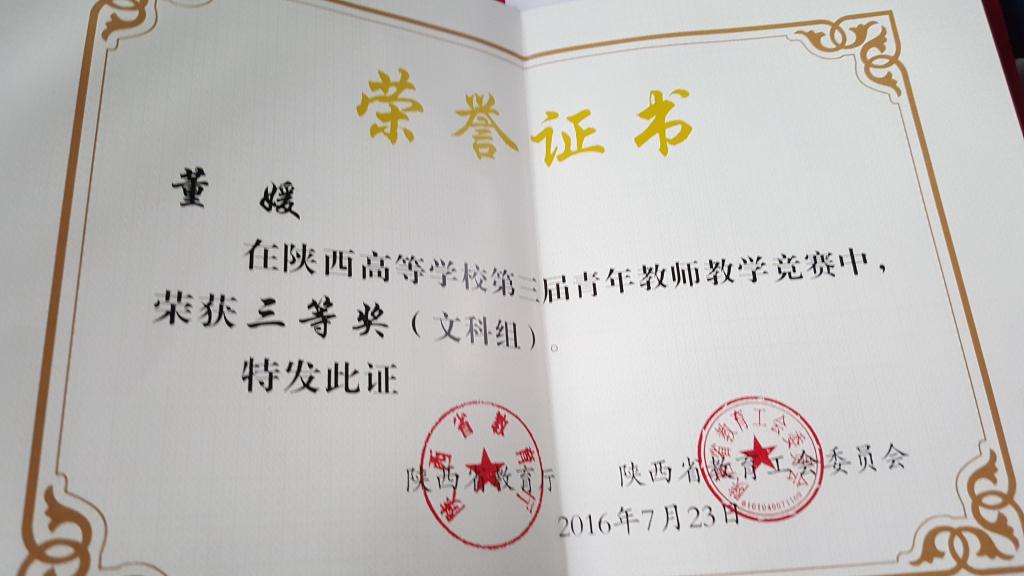 荣誉证书
董 媛
在陕西高等学校第三届青年教师教学竞赛中，
荣获三等奖（文科组）。
特发此证
陕西省教育厅
陕西省教育工会委员会
2016年7月23日
陕西省教育厅
陕西省教育工会委员会